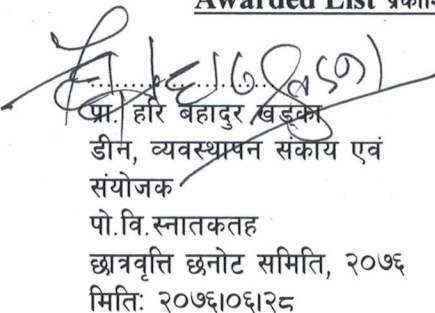 Awarded List प्रकाशि
प्रा. हरि बहादुर खड्का
डीन, व्यवस्थापन संकाय एवं
संयोजक
पो.वि.स्नातकतह
छात्रवृत्ति छनोट समिति, २०७६
मितिः २०७६।०६।२८